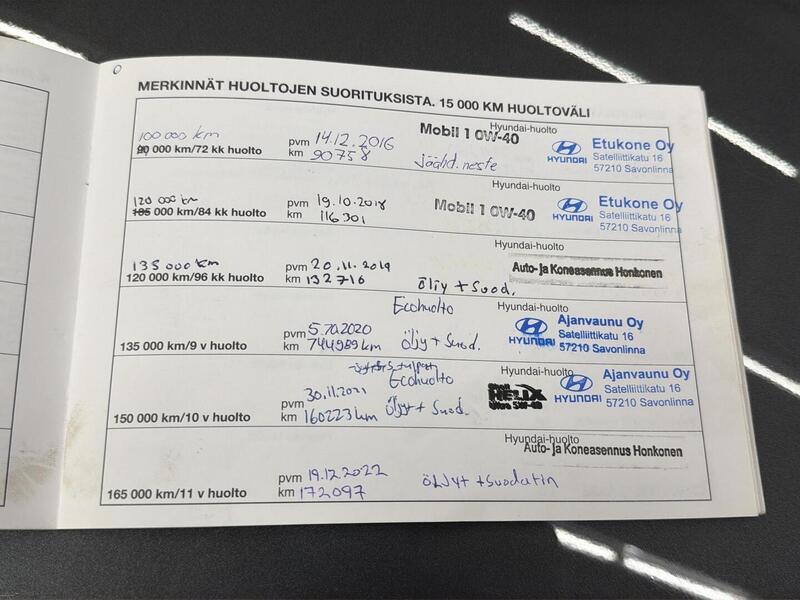 MERKINNÄT HUOLTOJEN SUORITUKSISTA. 15 000 KM HUOLTOVÄLI
100 000 km
90 000 km/72 kk huolto
pvm 14.12.2016
km 90758
Mobil 1 0W-40
Jäähd. neste
Hyundai-huolto
HYUNDAI
Etukone Oy
Satelliittikatu 16
57210 Savonlinna
120 000 km
105 000 km/84 kk huolto
pvm 19.10.2018
km 116301
Mobil 1 0W-40
Hyundai-huolto
HYUNDAI
Etukone Oy
Satelliittikatu 16
57210 Savonlinna
135 000 km
120 000 km/96 kk huolto
pvm 20.11.2019
km 132716
öljy + suod.
Hyundai-huolto
Auto- ja Koneasennus Honkonen
135 000 km/9 v huolto
pvm 5.10.2020
km 144989km
Ecohuolto
Öljy + suod.
Hyundai-huolto
HYUNDAI
Ajanvaunu Oy
Satelliittikatu 16
57210 Savonlinna
150 000 km/10 v huolto
pvm 30.11.2021
km 160223km
Ecohuolto
Öljyt + Suod.
Hyundai-huolto
Shell
HELIX
Ultra 5W-40
HYUNDAI
Ajanvaunu Oy
Satelliittikatu 16
57210 Savonlinna
165 000 km/11 v huolto
pvm 19.12.2022
km 172097
öljyt + suodatin
Hyundai-huolto
Auto- ja Koneasennus Honkonen